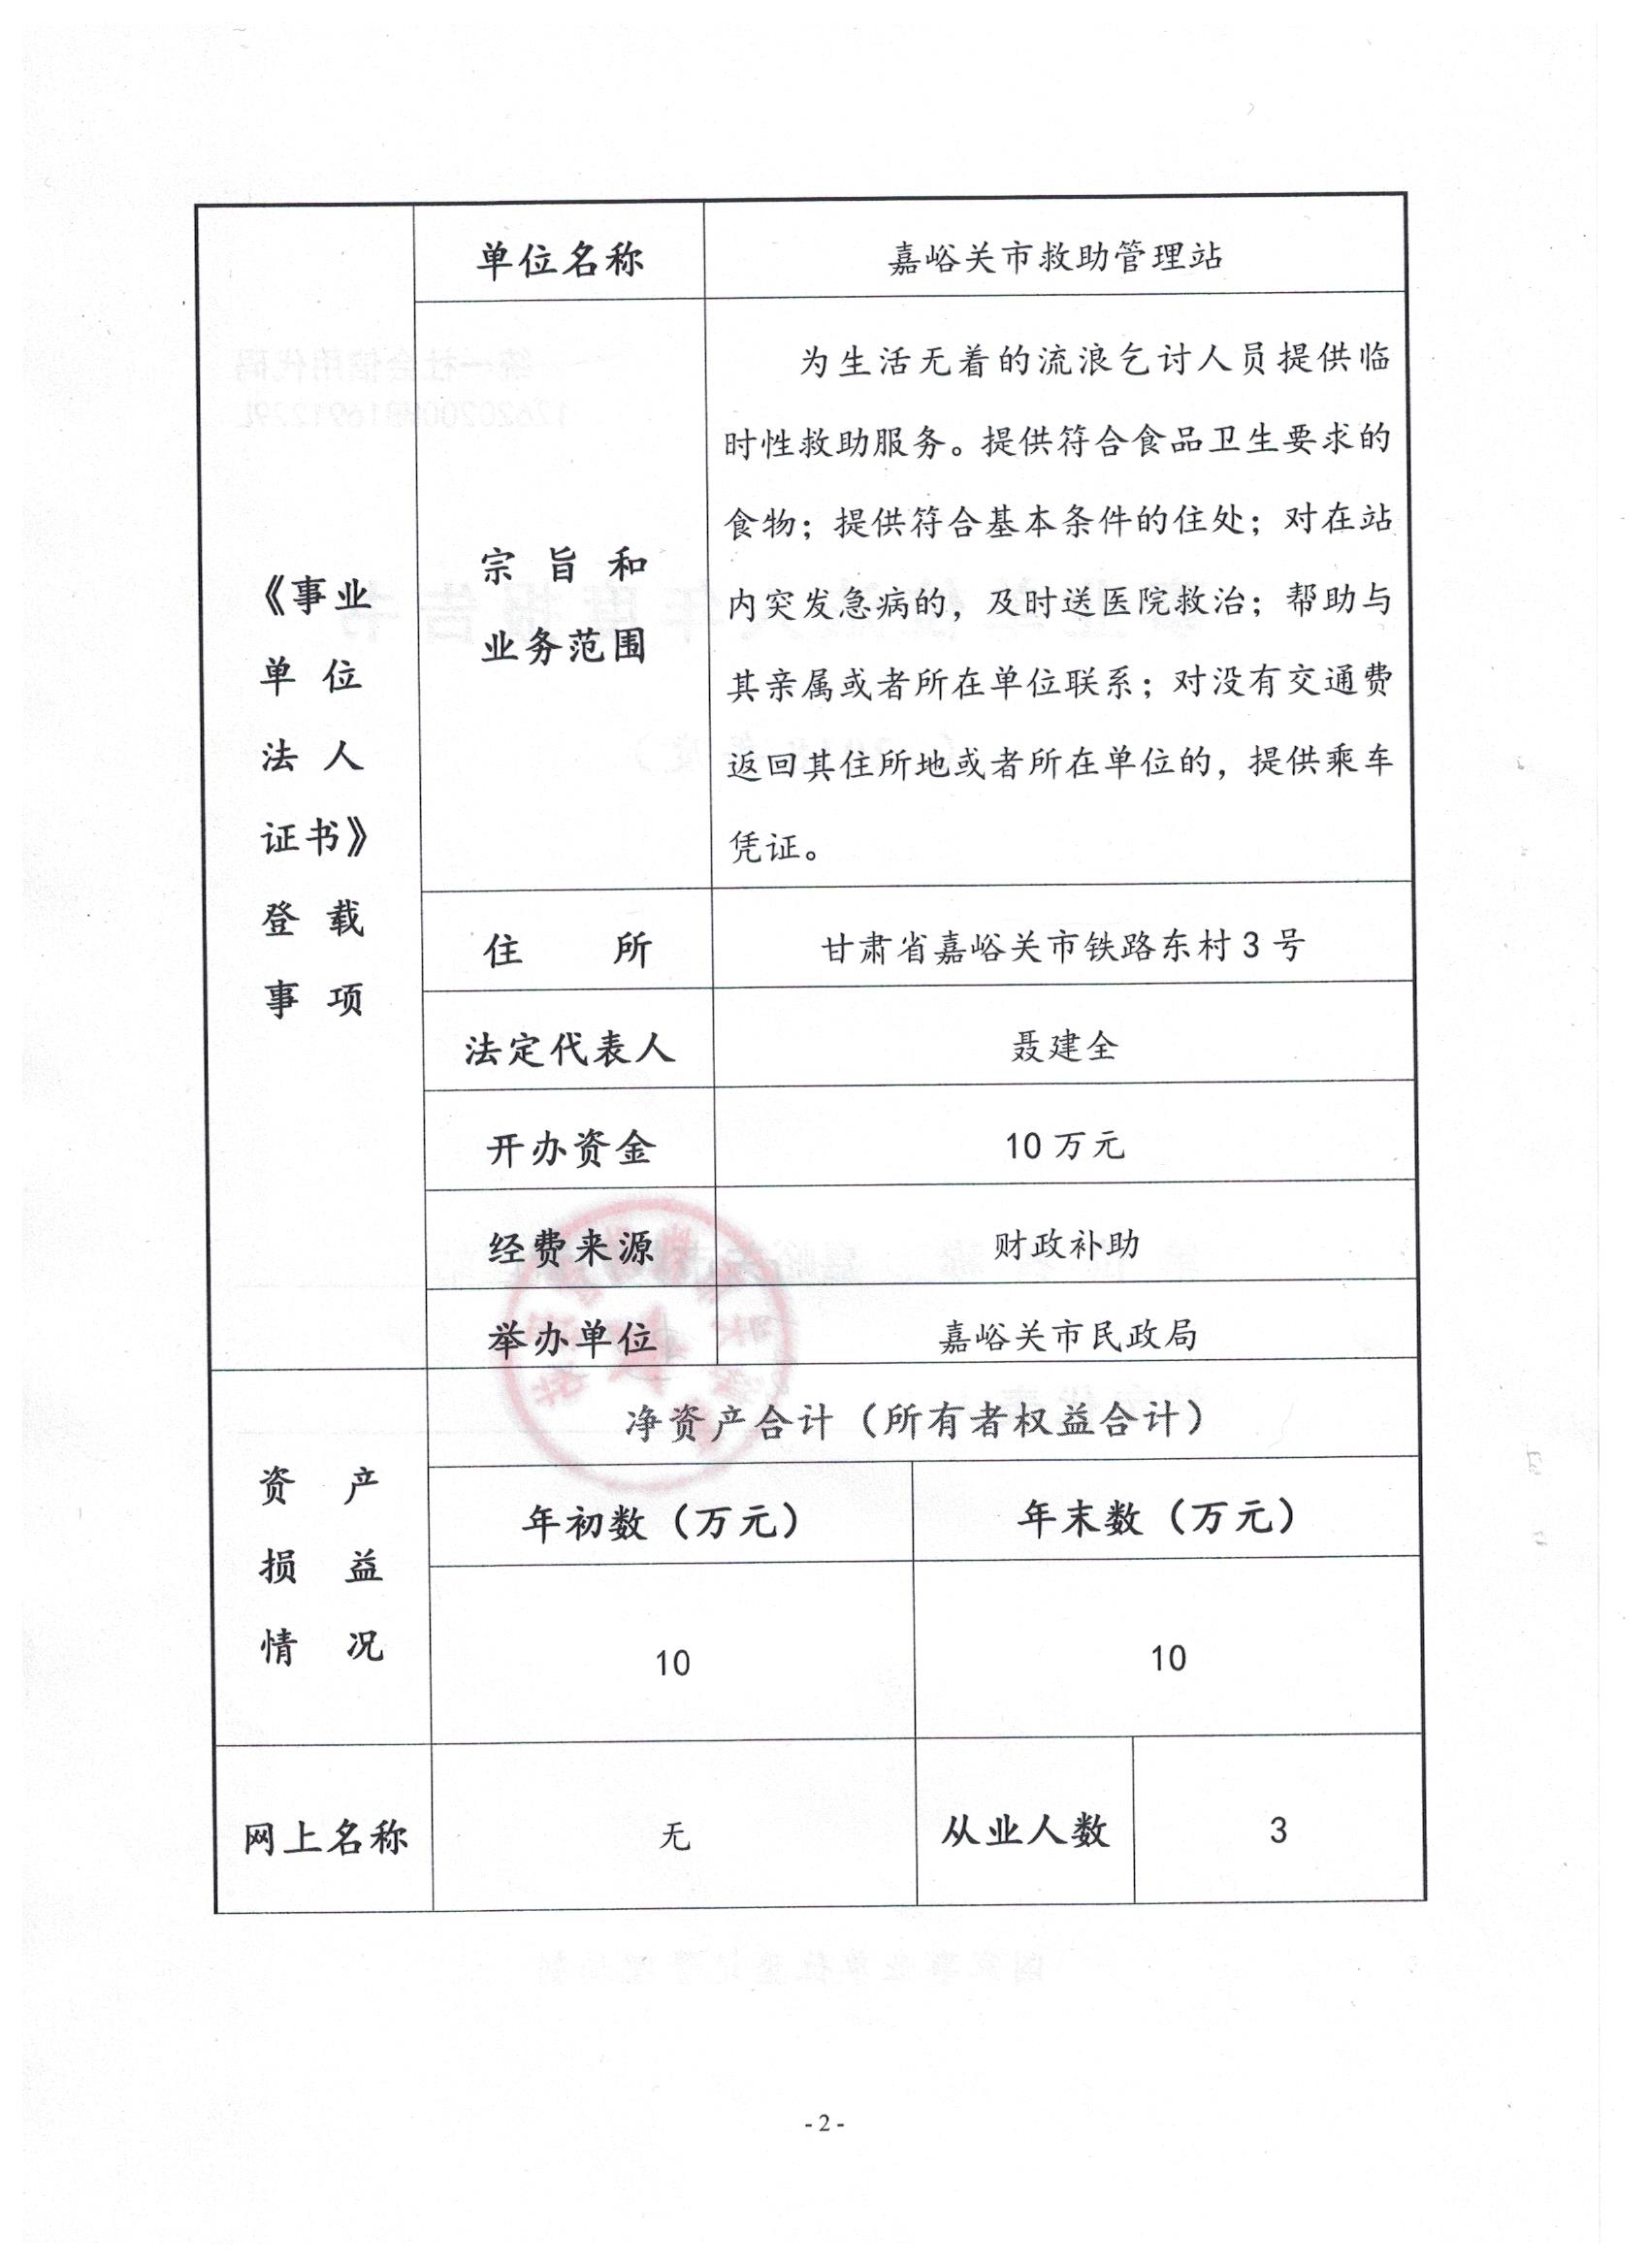 单位名称
嘉峪关市救助管理站
《事业
单位
法人
证书》
登载
事项
宗旨和
业务范围
为生活无着的流浪乞讨人员提供临
时性救助服务。提供符合食品卫生要求的
食物；提供符合基本条件的住处；对在站
内突发急病的，及时送医院救治；帮助与
其亲属或者所在单位联系；对没有交通费
返回其住所地或者所在单位的，提供乘车
凭证。
住 所
甘肃省嘉峪关市铁路东村3号
法定代表人
聂建全
开办资金
10万元
经费来源
财政补助
举办单位
嘉峪关市民政局
资产
损益
情况
净资产合计（所有者权益合计）
年初数（万元）
年末数（万元）
10
10
网上名称
无
从业人数
3
-2-